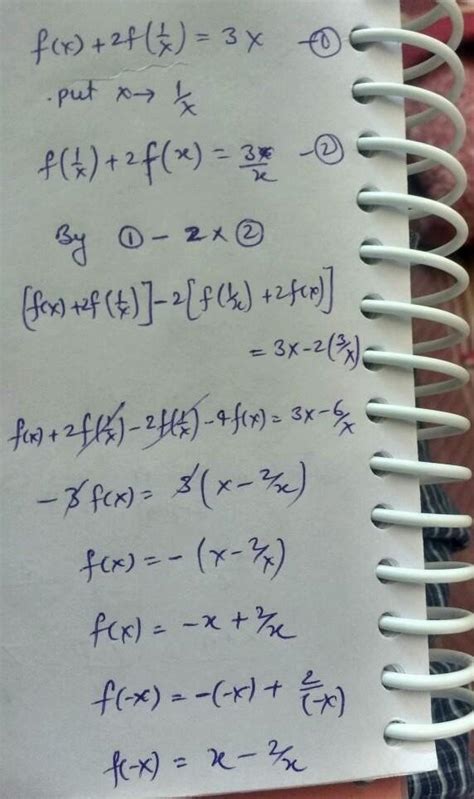 f(x) + 2f(1/x) = 3x — ①
put x → 1/x
f(1/x) + 2f(x) = 3/x — ②
By ① - 2 x ②
[f(x) + 2f(1/x)] - 2[f(1/x) + 2f(x)]
= 3x - 2(3/x)
f(x) + 2f(1/x) - 2f(1/x) - 4f(x) = 3x - 6/x
-3 f(x) = 3(x - 2/x)
f(x) = - (x - 2/x)
f(x) = -x + 2/x
f(-x) = -(-x) + 2/(-x)
f(-x) = x - 2/x